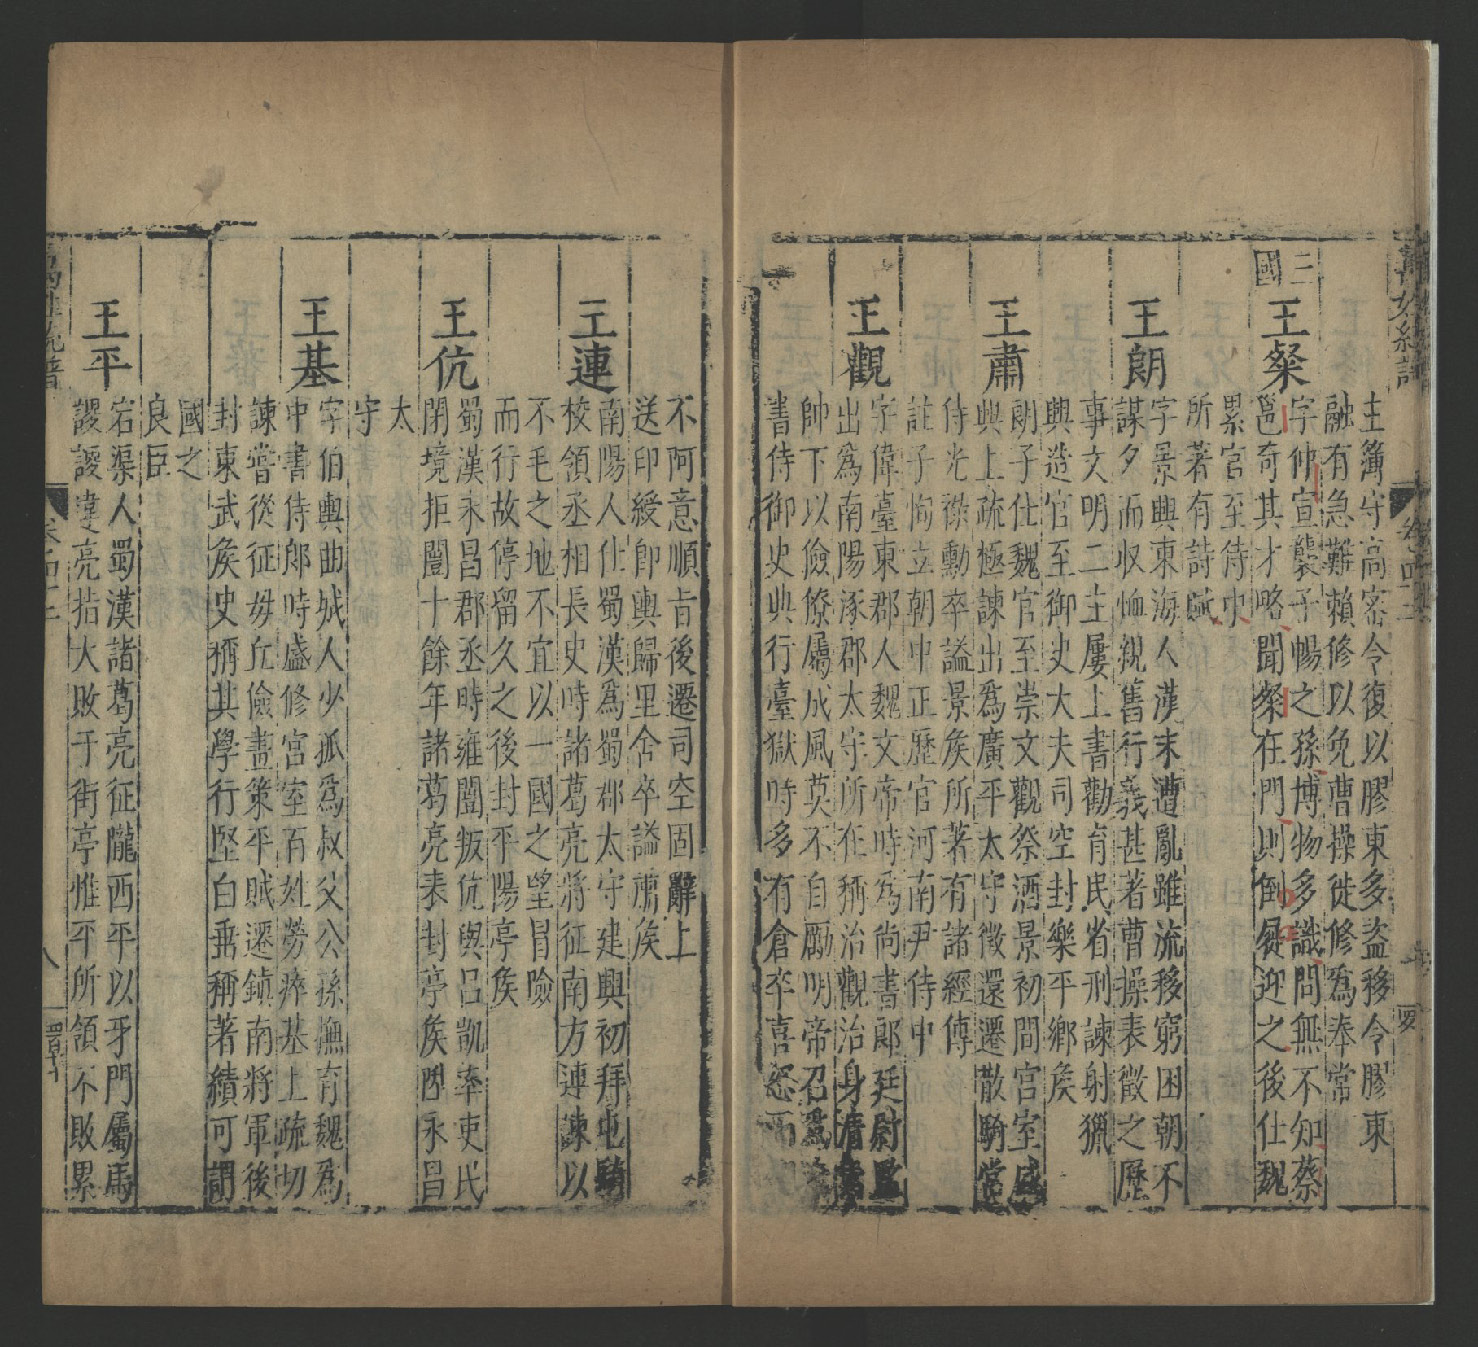 主簿守高密令復以膠東多盗移令膠東
融有急難賴修以免曹操徙修爲奉常
三國
王粲
字仲宣襲子暢之孫博物多識問無不知蔡
邕奇其才略聞粲在門則倒屣迎之後仕魏
累官至侍中
所著有詩賦
王朗
字景興東海人漢末遭亂雖流移窮困朝不
謀夕而收恤親舊行義甚著曹操表徵之歷
事文明二主屢上書勸育民省刑諫射獵
興造官至御史大夫司空封樂平鄉侯
王肅
朗子仕魏官至崇文觀祭酒景初間宮室盛
興上疏極諫出爲廣平太守徵還遷散騎常
侍光祿勳卒謚景侯所著有諸經傳
註子恂立朝中正歷官河南尹侍中
王觀
字偉臺東郡人魏文帝時爲尚書郎廷尉監
出爲南陽涿郡太守所在稱治觀治身清
帥下以儉僚屬成風莫不自勵明帝召爲
書侍御史典行臺獄時多有倉卒喜怒而
不阿意順旨後遷司空固辭上
送印綬即輿歸里舍卒謚肅侯
王連
南陽人仕蜀漢爲蜀郡太守建興初拜屯騎
校領丞相長史時諸葛亮將征南方連諫以
不毛之地不宜以一國之望冒險
而行故停留久之後封平陽亭侯
王伉
蜀漢永昌郡丞時雍闓叛伉與呂凱率吏民
閉境拒闓十餘年諸葛亮表封亭侯図永昌
太
守
王基
字伯輿曲城人少孤爲叔父公孫撫育魏爲
中書侍郎時盛修宮室百姓勞瘁基上疏切
諫嘗從征毋丘儉畫策平賊遷鎮南將軍後
封東武侯史稱其學行堅白垂稱著績可謂
國之
良臣
王平
宕渠人蜀漢諸葛亮征隴西平以牙門屬馬
謖謖違亮㨖大敗于街亭惟平所領不敗累